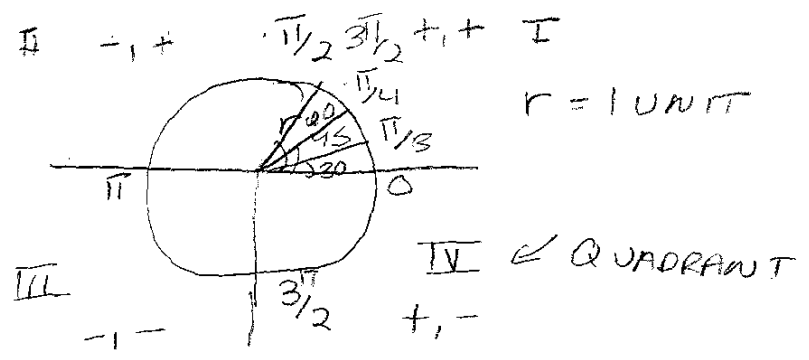 II -, + π/2 3π/2 +, + I
π/4
r = 1 UNIT
r 60 π/3
45
30
π 0
IV ← QUADRANT
III 3π/2
-, - +, -